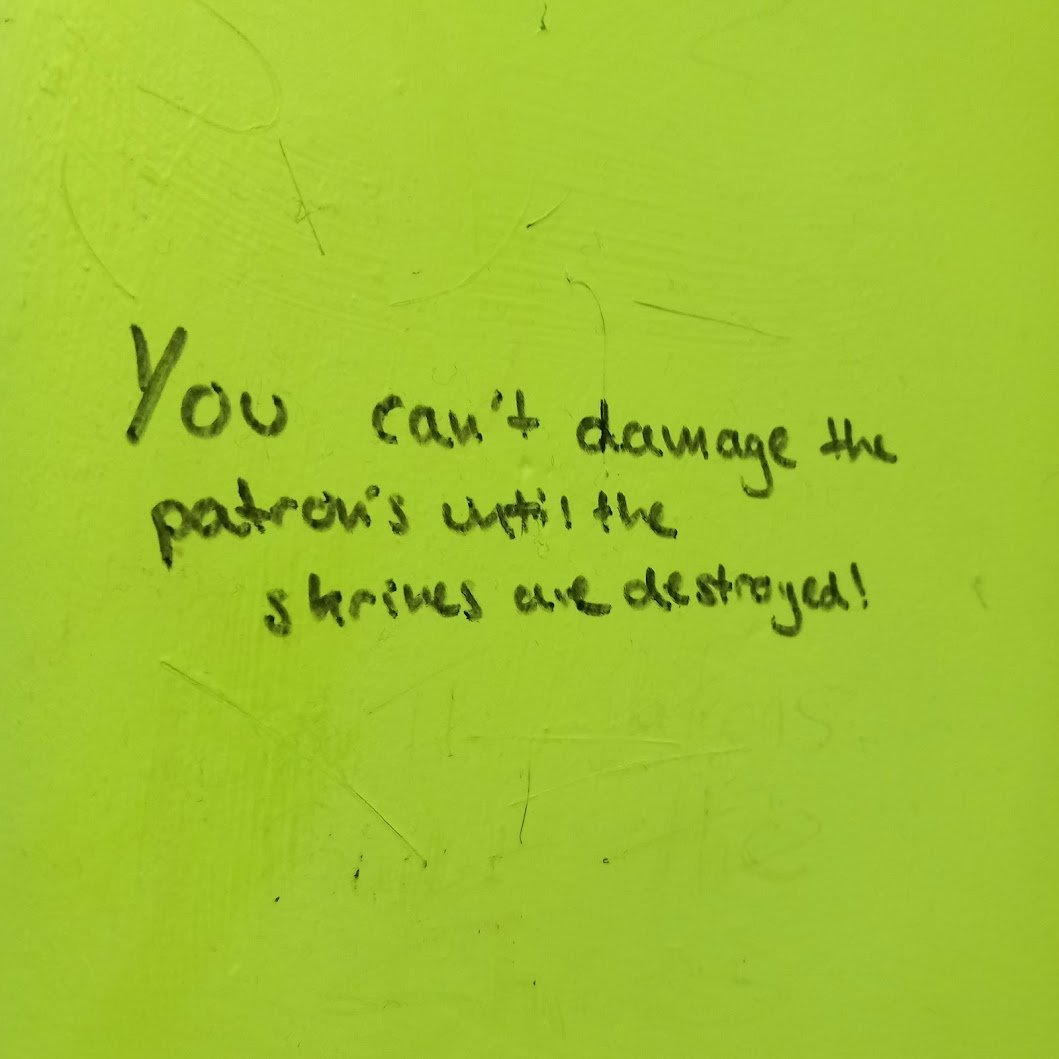 You can't damage the
patron's until the
shrines are destroyed!